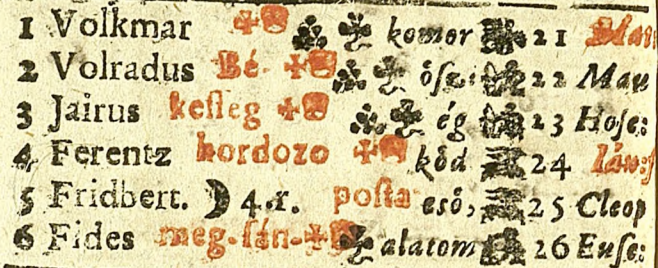 1 Volkmar komor 21
2 Volradus Bé- ősz: 22
3 Jairus kesleg ég 23 Hose:
4 Ferentz hordozo köd 24
5 Fridbert. ☽ 4.r. posta esö, 25 Cleop
6 Fides meg-sán- alatom 26 Euse: